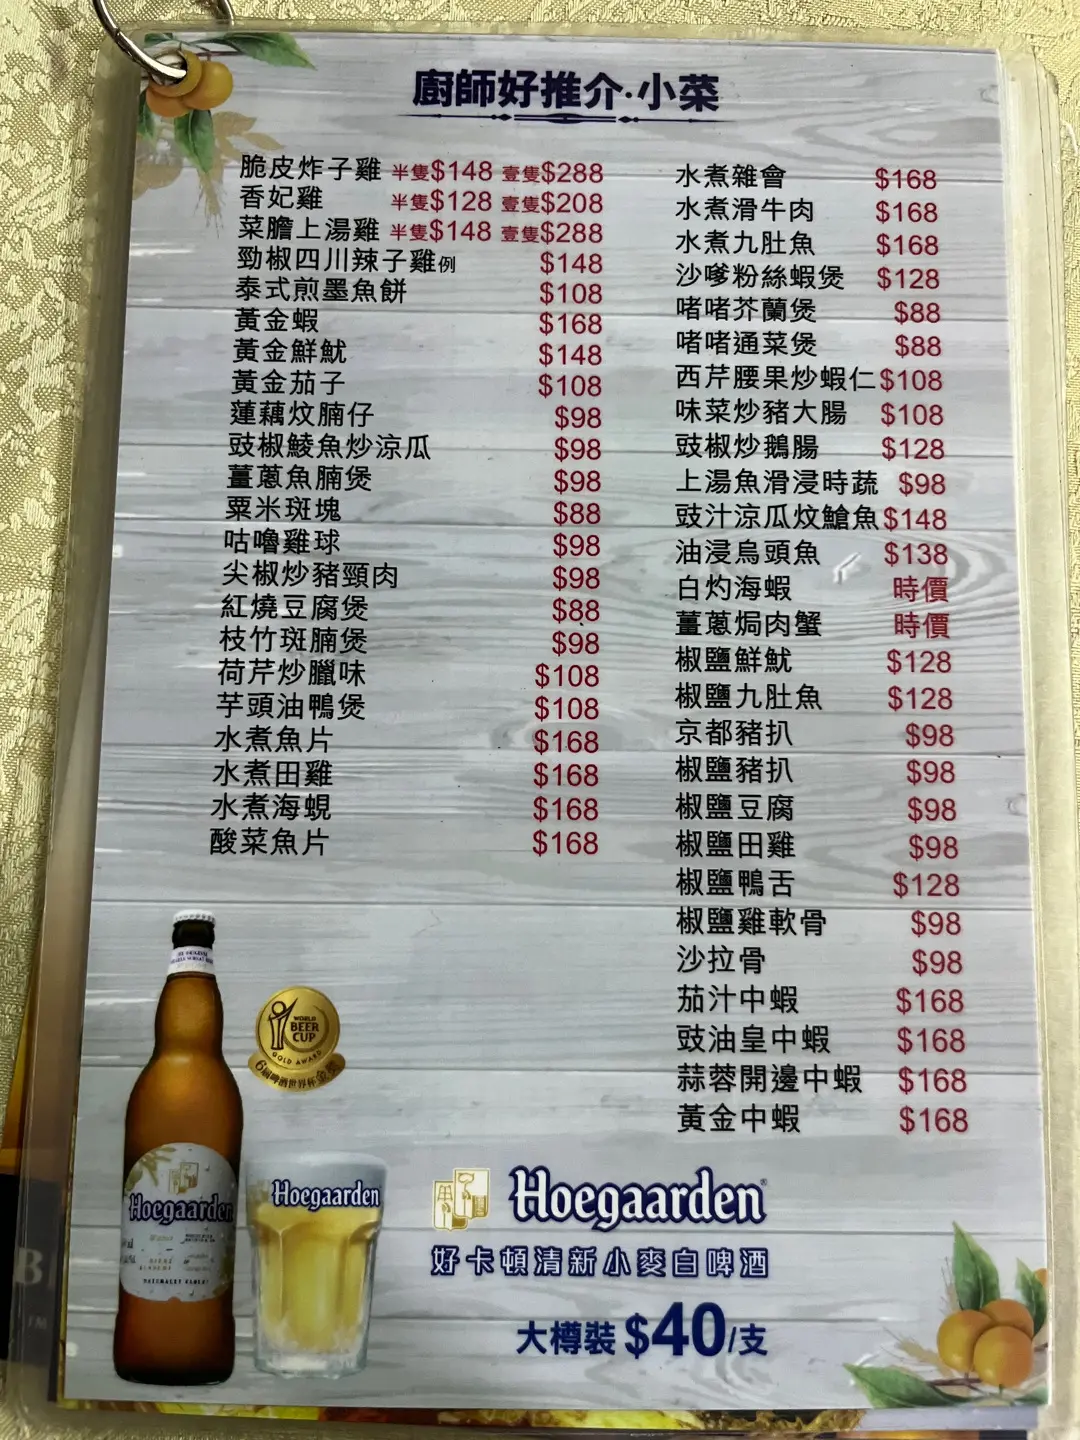 廚師好推介·小菜
脆皮炸子雞 半隻$148 壹隻$288
香妃雞 半隻$128 壹隻$208
菜膽上湯雞 半隻$148 壹隻$288
勁椒四川辣子雞例 $148
泰式煎墨魚餅 $108
黃金蝦 $168
黃金鮮魷 $148
黃金茄子 $108
蓮藕炆腩仔 $98
豉椒鯪魚炒涼瓜 $98
薑蔥魚腩煲 $98
粟米斑塊 $88
咕嚕雞球 $98
尖椒炒豬頸肉 $98
紅燒豆腐煲 $88
枝竹斑腩煲 $98
荷芹炒臘味 $108
芋頭油鴨煲 $108
水煮魚片 $168
水煮田雞 $168
水煮海蜆 $168
酸菜魚片 $168
水煮雜會 $168
水煮滑牛肉 $168
水煮九肚魚 $168
沙嗲粉絲蝦煲 $128
啫啫芥蘭煲 $88
啫啫通菜煲 $88
西芹腰果炒蝦仁 $108
味菜炒豬大腸 $108
豉椒炒鵝腸 $128
上湯魚滑浸時蔬 $98
豉汁涼瓜炆鱠魚 $148
油浸烏頭魚 $138
白灼海蝦 時價
薑蔥焗肉蟹 時價
椒鹽鮮魷 $128
椒鹽九肚魚 $128
京都豬扒 $98
椒鹽豬扒 $98
椒鹽豆腐 $98
椒鹽田雞 $98
椒鹽鴨舌 $128
椒鹽雞軟骨 $98
沙拉骨 $98
茄汁中蝦 $168
豉油皇中蝦 $168
蒜蓉開邊中蝦 $168
黃金中蝦 $168
WORLD
BEER
CUP
GOLD AWARD
6屆啤酒世界杯金獎
Hoegaarden
Hoegaarden
Hoegaarden
好卡頓清新小麥白啤酒
大樽裝 $40/支